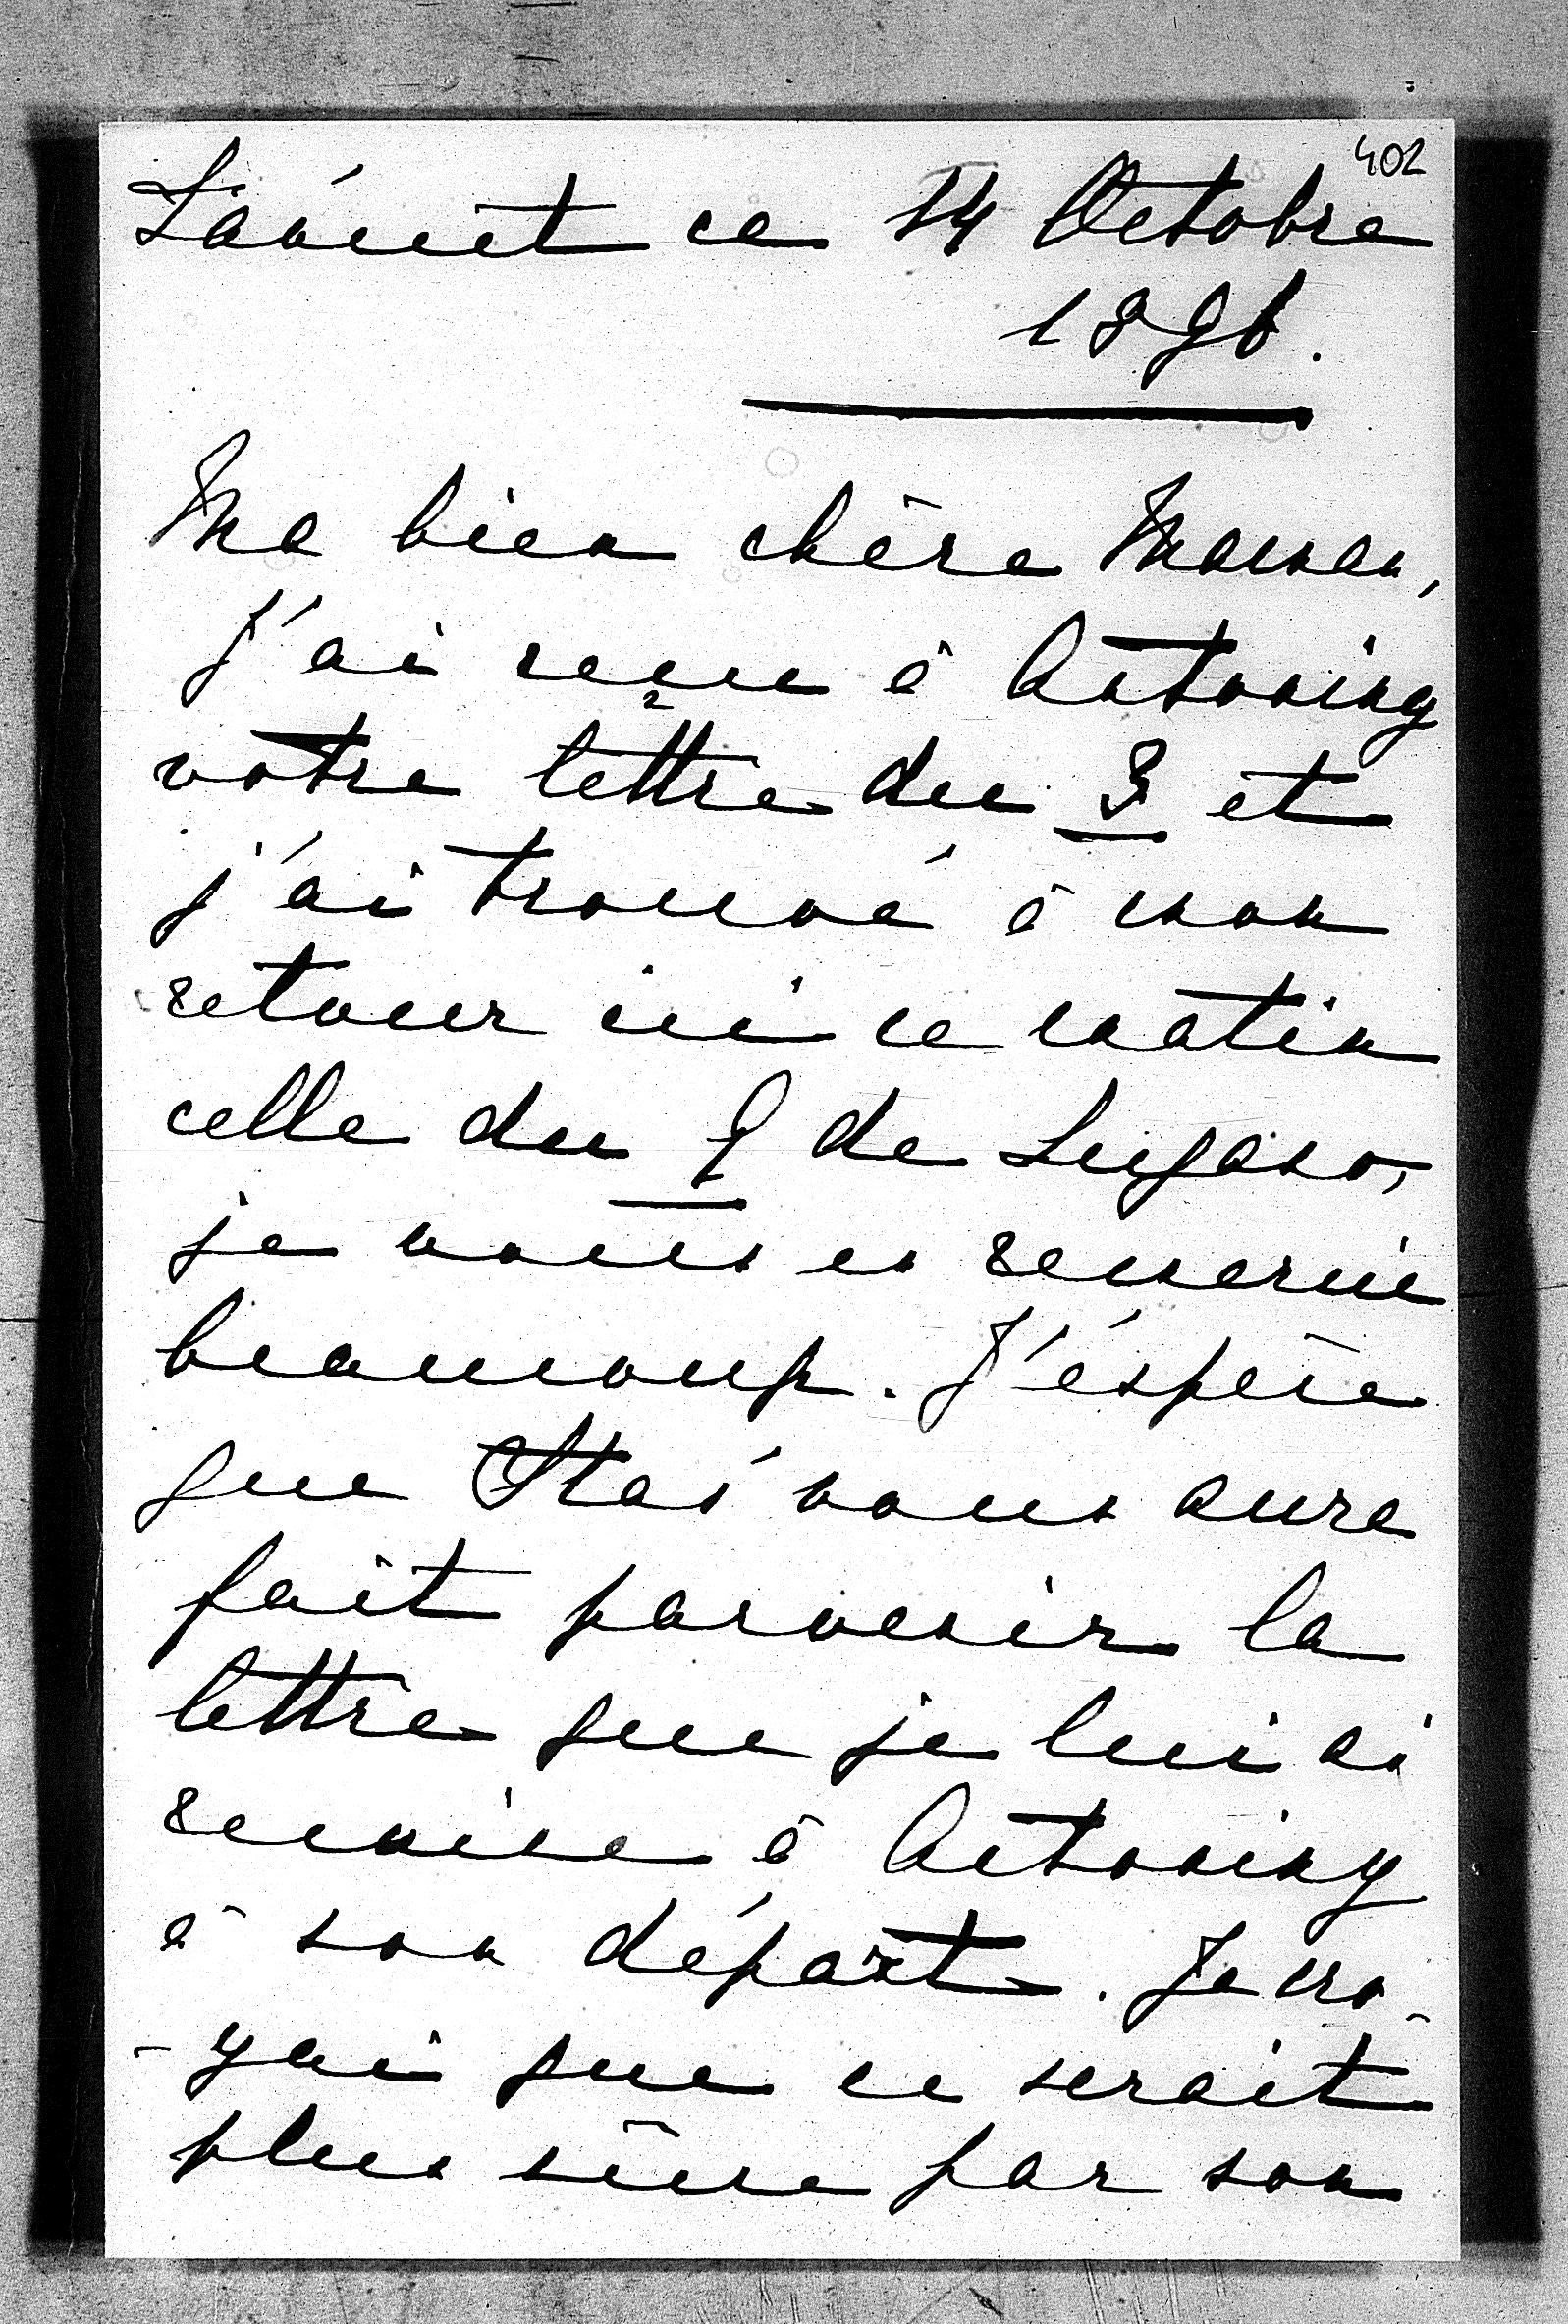 402
Łańcut ce 14 Octobre
1896.
Ma bien chère Maman,
J'ai reçu à Antoniny
votre lettre du 3 et
j'ai trouvé à mon
retour ici ce matin
celle du 9 de Lugano,
je vous en remercie
beaucoup. J'éspère
que Staś vous aura
fait parvenir la
lettre que je lui ai
remise à Antoniny
à son départ. Je cro-
-yai que ce serait
plus sûre par son